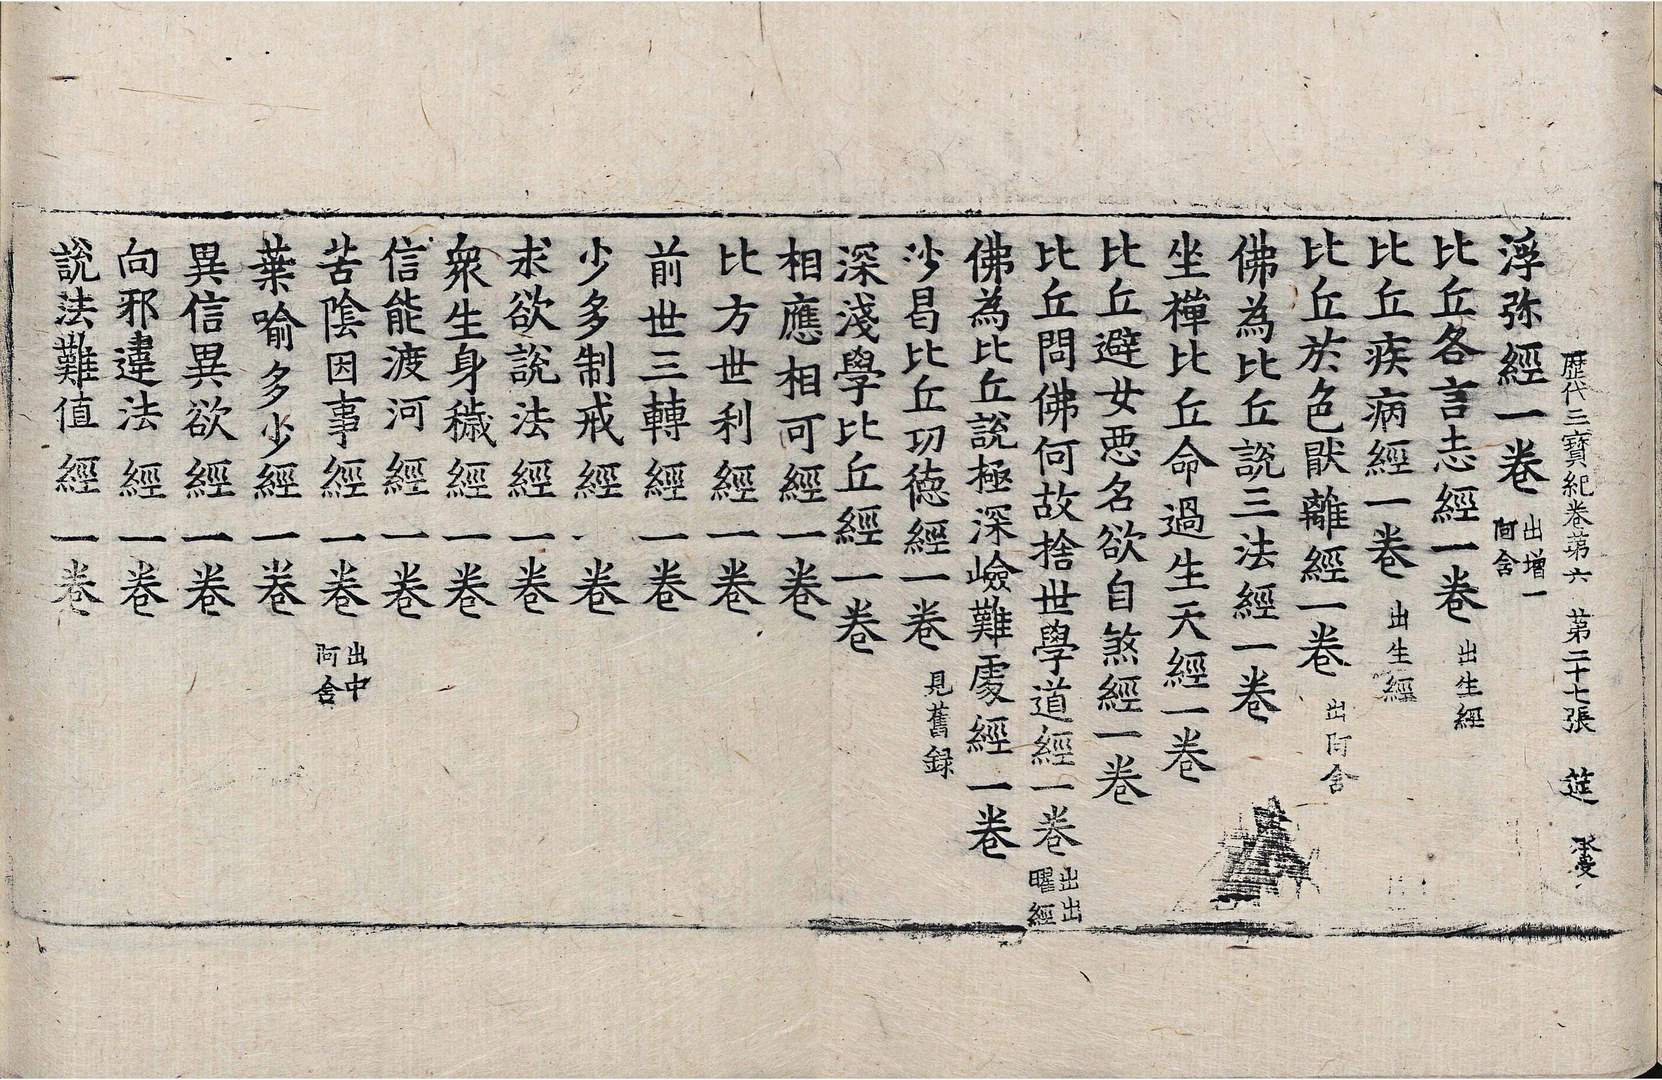 歴代三寶紀卷苐六　苐二十七張　莚　承愛
浮弥經一卷 出增一阿含
比丘各言志經一卷 出生經
比丘疾病經一卷 出生經
比丘於色厭離經一卷 出阿含
佛為比丘說三法經一卷
坐禪比丘命過生天經一卷
比丘避女惡名欲自煞經一卷
比丘問佛何故捨世學道經一卷 出出曜經
佛為比丘說極深嶮難處經一卷
沙曷比丘功德經一卷 見舊録
深淺學比丘經一卷
相應相可經一卷
比方世利經一卷
前世三轉經一卷
少多制戒經一卷
求欲說法經一卷
衆生身穢經一卷
信能渡河經一卷
苦陰因事經一卷 出中阿含
葉喻多少經一卷
異信異欲經一卷
向邪違法經一卷
說法難值經一卷